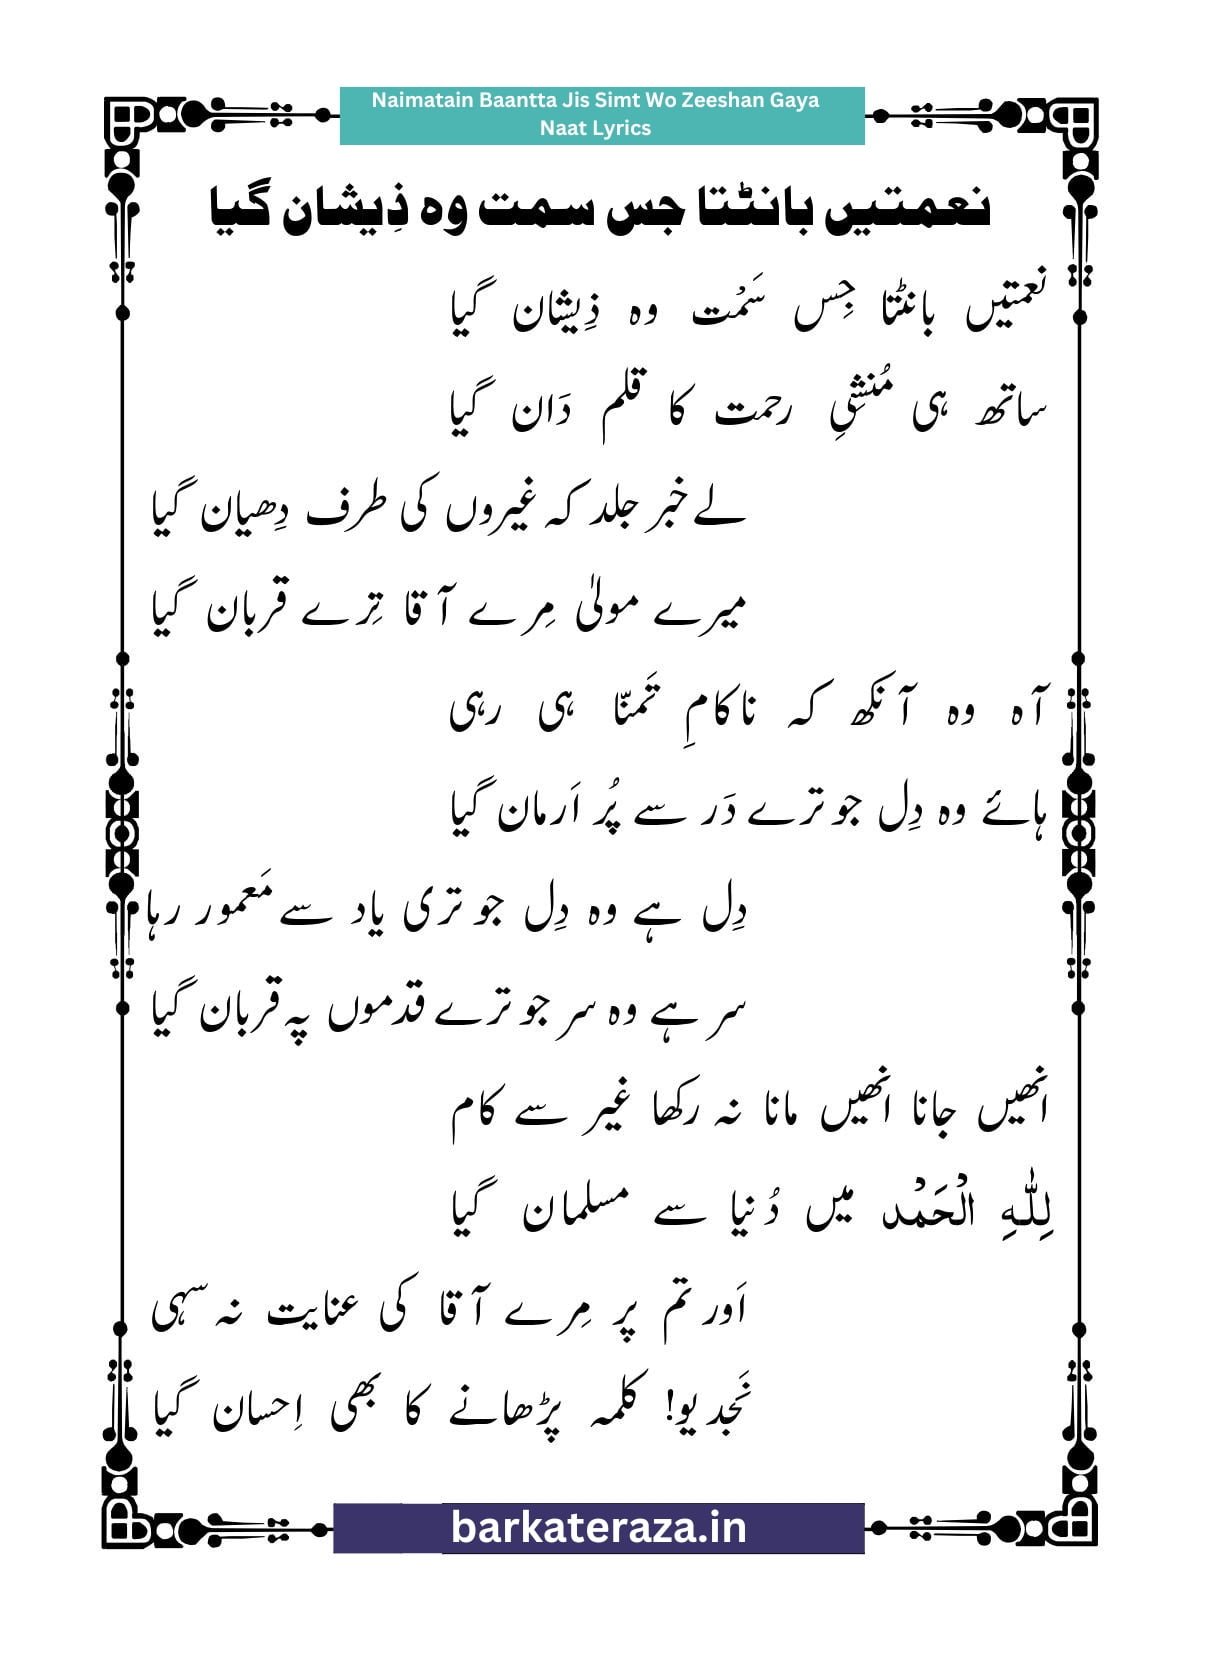 Naimatain Baantta Jis Simt Wo Zeeshan Gaya
Naat Lyrics
نعمتیں بانٹتا جس سمت وہ ذِیشان گیا
نعمتیں بانٹتا جِس سَمْت وہ ذِیشان گیا
ساتھ ہی مُنشیِٔ رحمت کا قلم دَان گیا
لے خبر جلد کہ غیروں کی طرف دِھیان گیا
میرے مولیٰ مِرے آقا تِرے قربان گیا
آہ وہ آنکھ کہ ناکامِ تَمنّا ہی رہی
ہائے وہ دِل جو ترے دَر سے پُر اَرمان گیا
دِل ہے وہ دِل جو تری یاد سے مَعمور رہا
سر ہے وہ سر جو ترے قدموں پہ قربان گیا
انھیں جانا انھیں مانا نہ رکھا غیر سے کام
لِلّٰہِ الْحَمْد میں دُنیا سے مسلمان گیا
اَور تم پر مِرے آقا کی عنایت نہ سہی
نَجدیو! کلمہ پڑھانے کا بھی اِحسان گیا
barkateraza.in